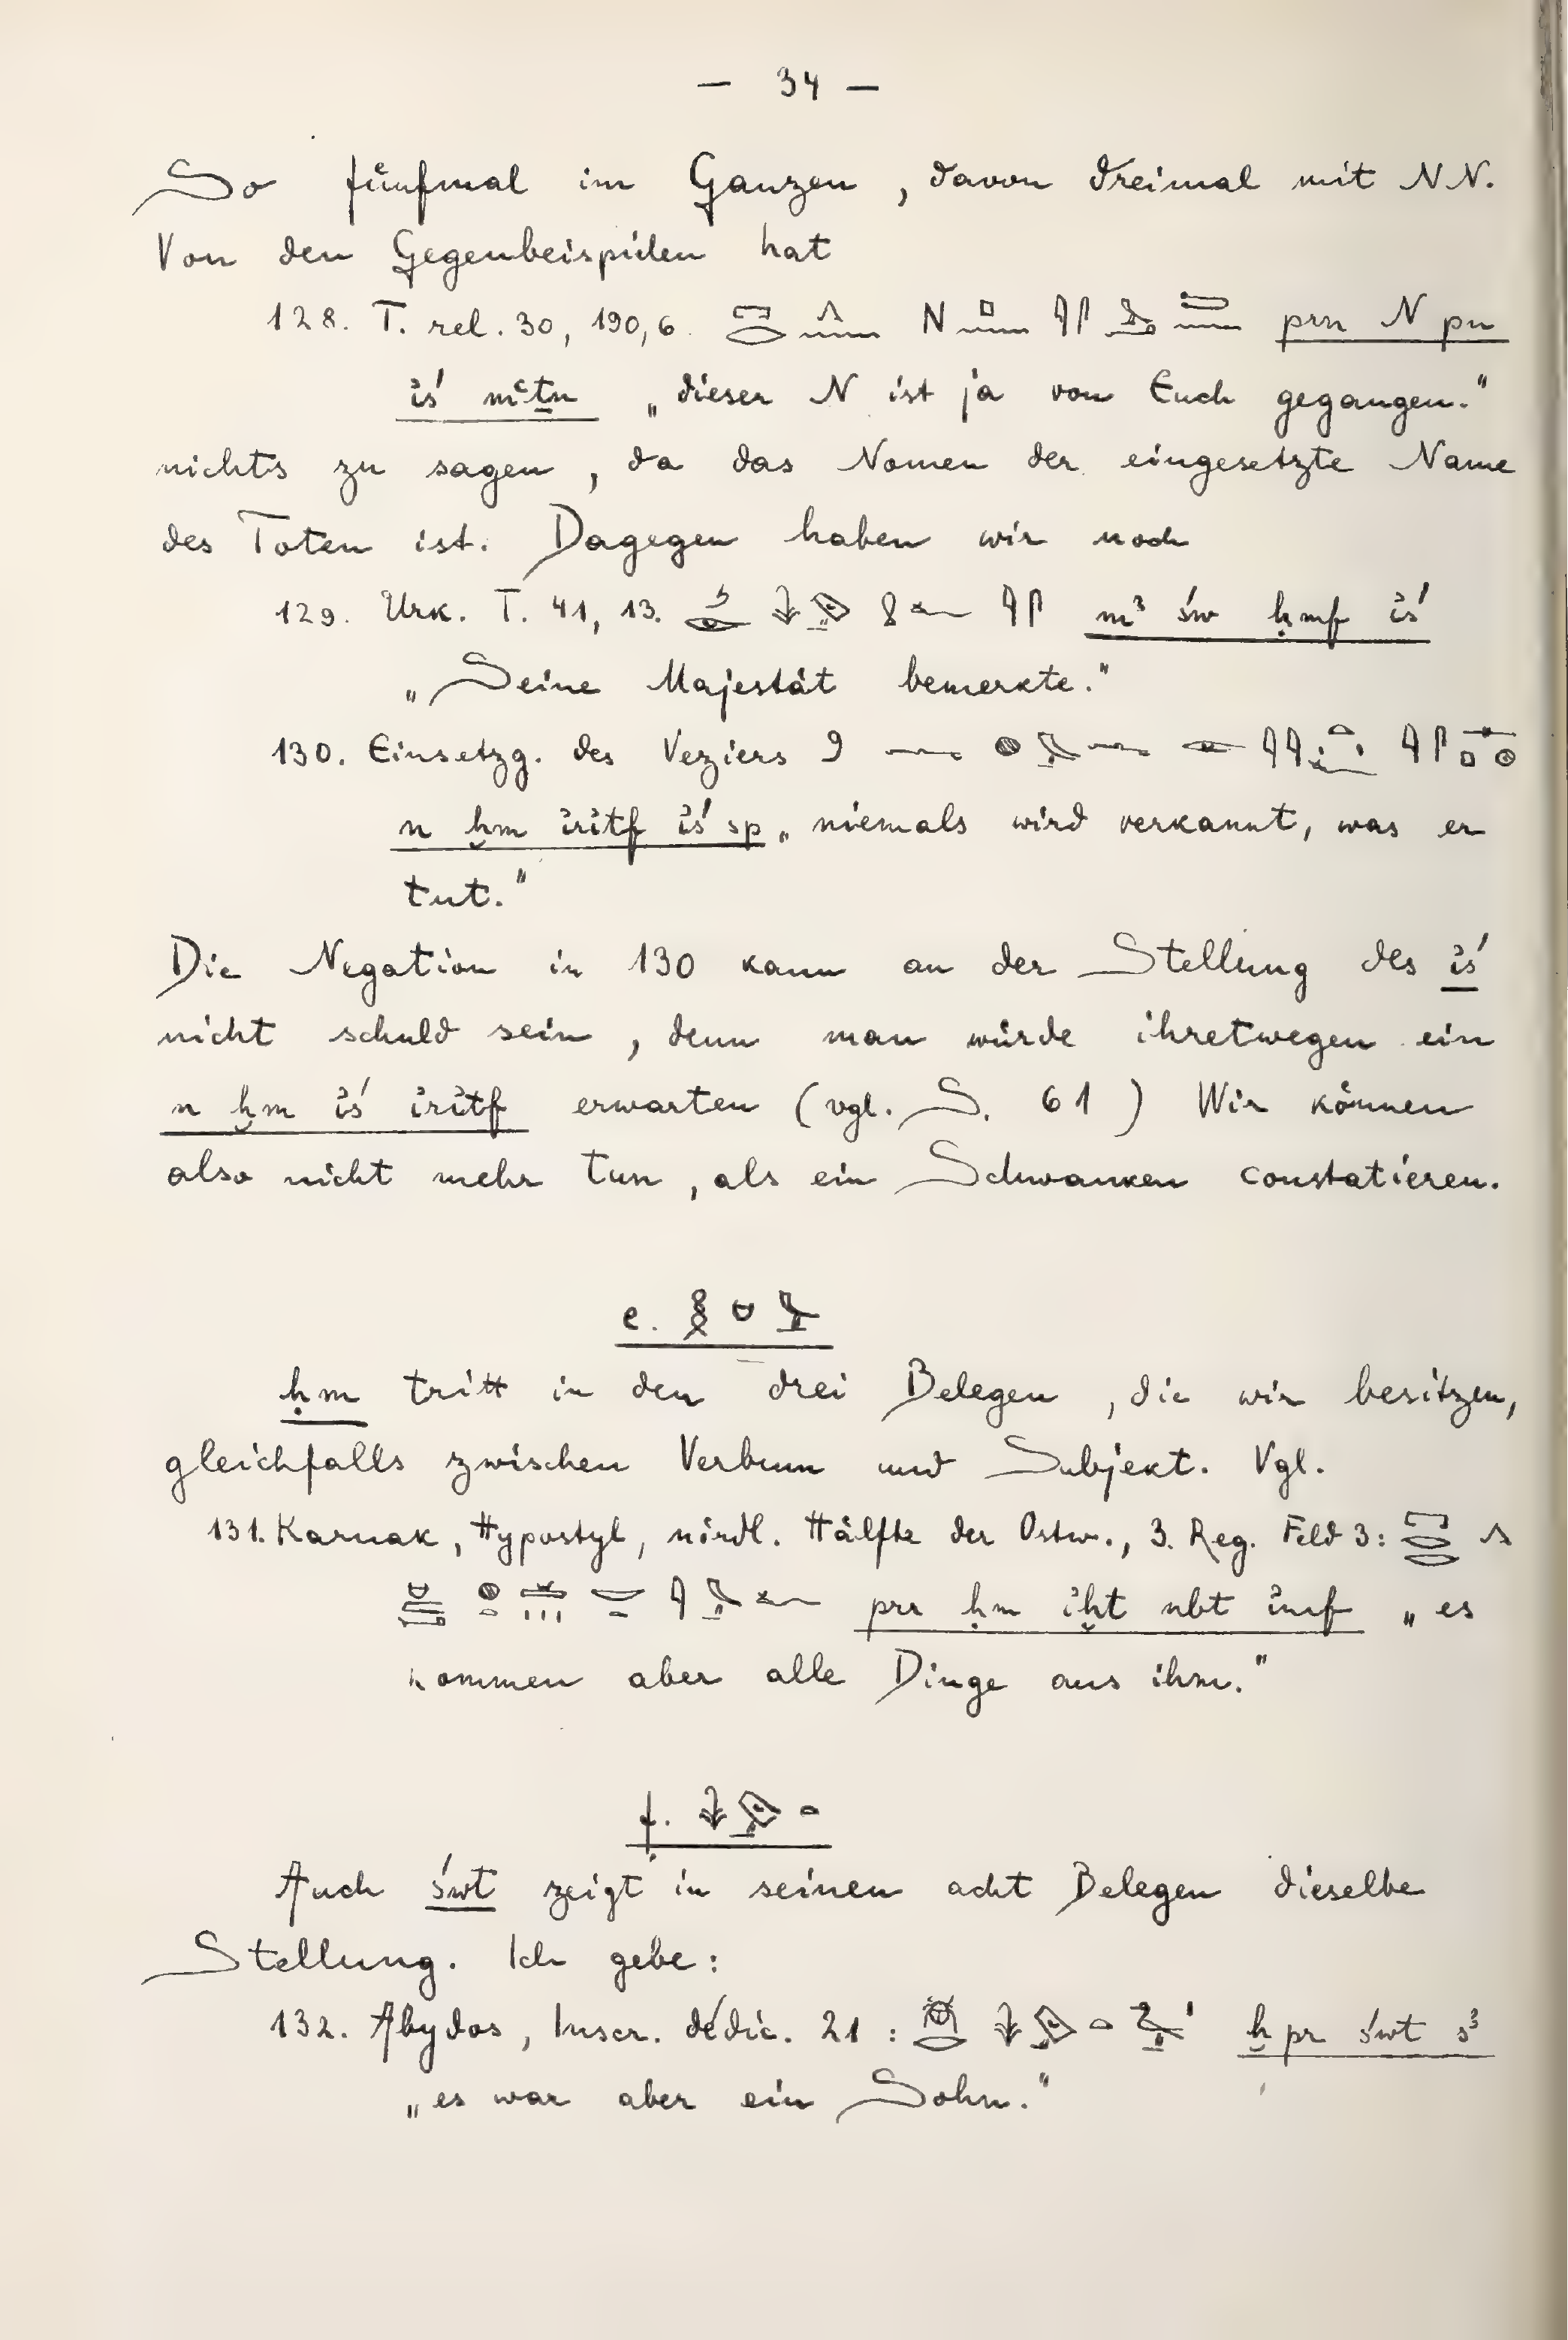 — 34 —
So fünfmal im Ganzen, davon dreimal mit NN.
Von den Gegenbeispielen hat
128. T. rel. 30, 190,6. 𓉐𓂋𓂻𓈖 N 𓊪𓈖 𓇋𓋴 prn N pn
ỉś mʿṯn „dieser N ist ja von Euch gegangen."
nichts zu sagen, da das Nomen der eingesetzte Name
des Toten ist. Dagegen haben wir noch
129. Urk. T. 41, 13. 𓌳𓁹 𓇓𓅱 𓍛𓆑 𓇋𓋴 mꜣ św ḥmf ỉś
„Seine Majestät bemerkte."
130. Einsetzg. des Veziers 9 𓂜 𓐍𓅓𓂜 𓁹 𓇋𓋴𓊪𓊗
n ḫm ỉrỉtf ỉś sp „niemals wird verkannt, was er
tut."
Die Negation in 130 kann an der Stellung des ỉś
nicht schuld sein, denn man würde ihretwegen ein
n ḫm ỉś ỉrỉtf erwarten (vgl. S. 61) Wir können
also nicht mehr tun, als ein Schwanken constatieren.
e. 𓎛𓅓
ḥm tritt in den drei Belegen, die wir besitzen,
gleichfalls zwischen Verbum und Subjekt. Vgl.
131. Karnak, Hypostyl, nördl. Hälfte der Ostw., 3. Reg. Feld 3: 𓉐𓂋𓂋𓂻
𓐍𓏏𓏛𓏥 𓎟𓏏 𓇋𓅓𓆑 prr ḥm ỉḫt nbt ỉmf „es
kommen aber alle Dinge aus ihm."
f. 𓇓𓅱𓏏
Auch śwt zeigt in seinen acht Belegen dieselbe
Stellung. Ich gebe:
132. Abydos, Inscr. dédic. 21: 𓆣𓂋 𓇓𓅱𓏏 𓅭𓏤 ḫpr śwt sꜣ
„es war aber ein Sohn."